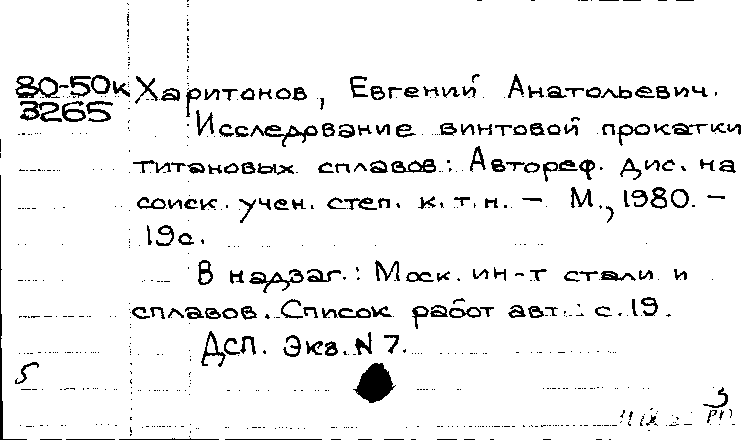 80-50к Харитонов, Евгений Анатольевич.
3265
Исследование винтовой прокатки
титановых сплавов: Автореф. дис. на
соиск. учен. степ. к.т.н. – М., 1980. –
19с.
В надзаг.: Моск. ин-т стали и
сплавов. Список работ авт.: с.19.
ДСП. Экз. N 7.
5